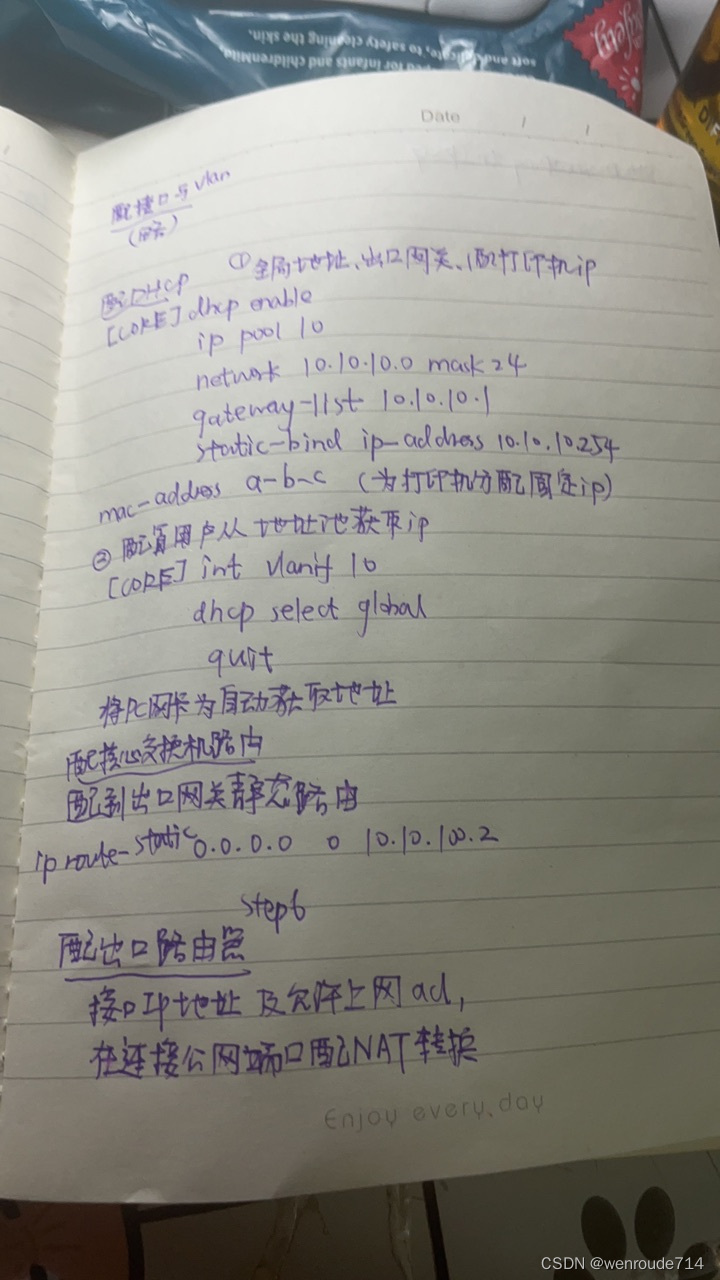 soft and delicate, to safety cleaning the skin.
for infants and children
Date / /
配接口与vlan
(略)
配DHCP ①全局地址、出口网关、配打印机ip
[CORE] dhcp enable
ip pool 10
network 10.10.10.0 mask 24
gateway-list 10.10.10.1
static-bind ip-address 10.10.10.254
mac-address a-b-c (为打印机分配固定ip)
②配置用户从地址池获取ip
[CORE] int vlanif 10
dhcp select global
quit
将PC网卡为自动获取地址
配核心交换机路由
配到出口网关静态路由
ip route-static 0.0.0.0 0 10.10.100.2
step6
配出口路由器
接口IP地址 及允许上网acl,
在连接公网端口配NAT转换
Enjoy every.day
CSDN @wenroude714